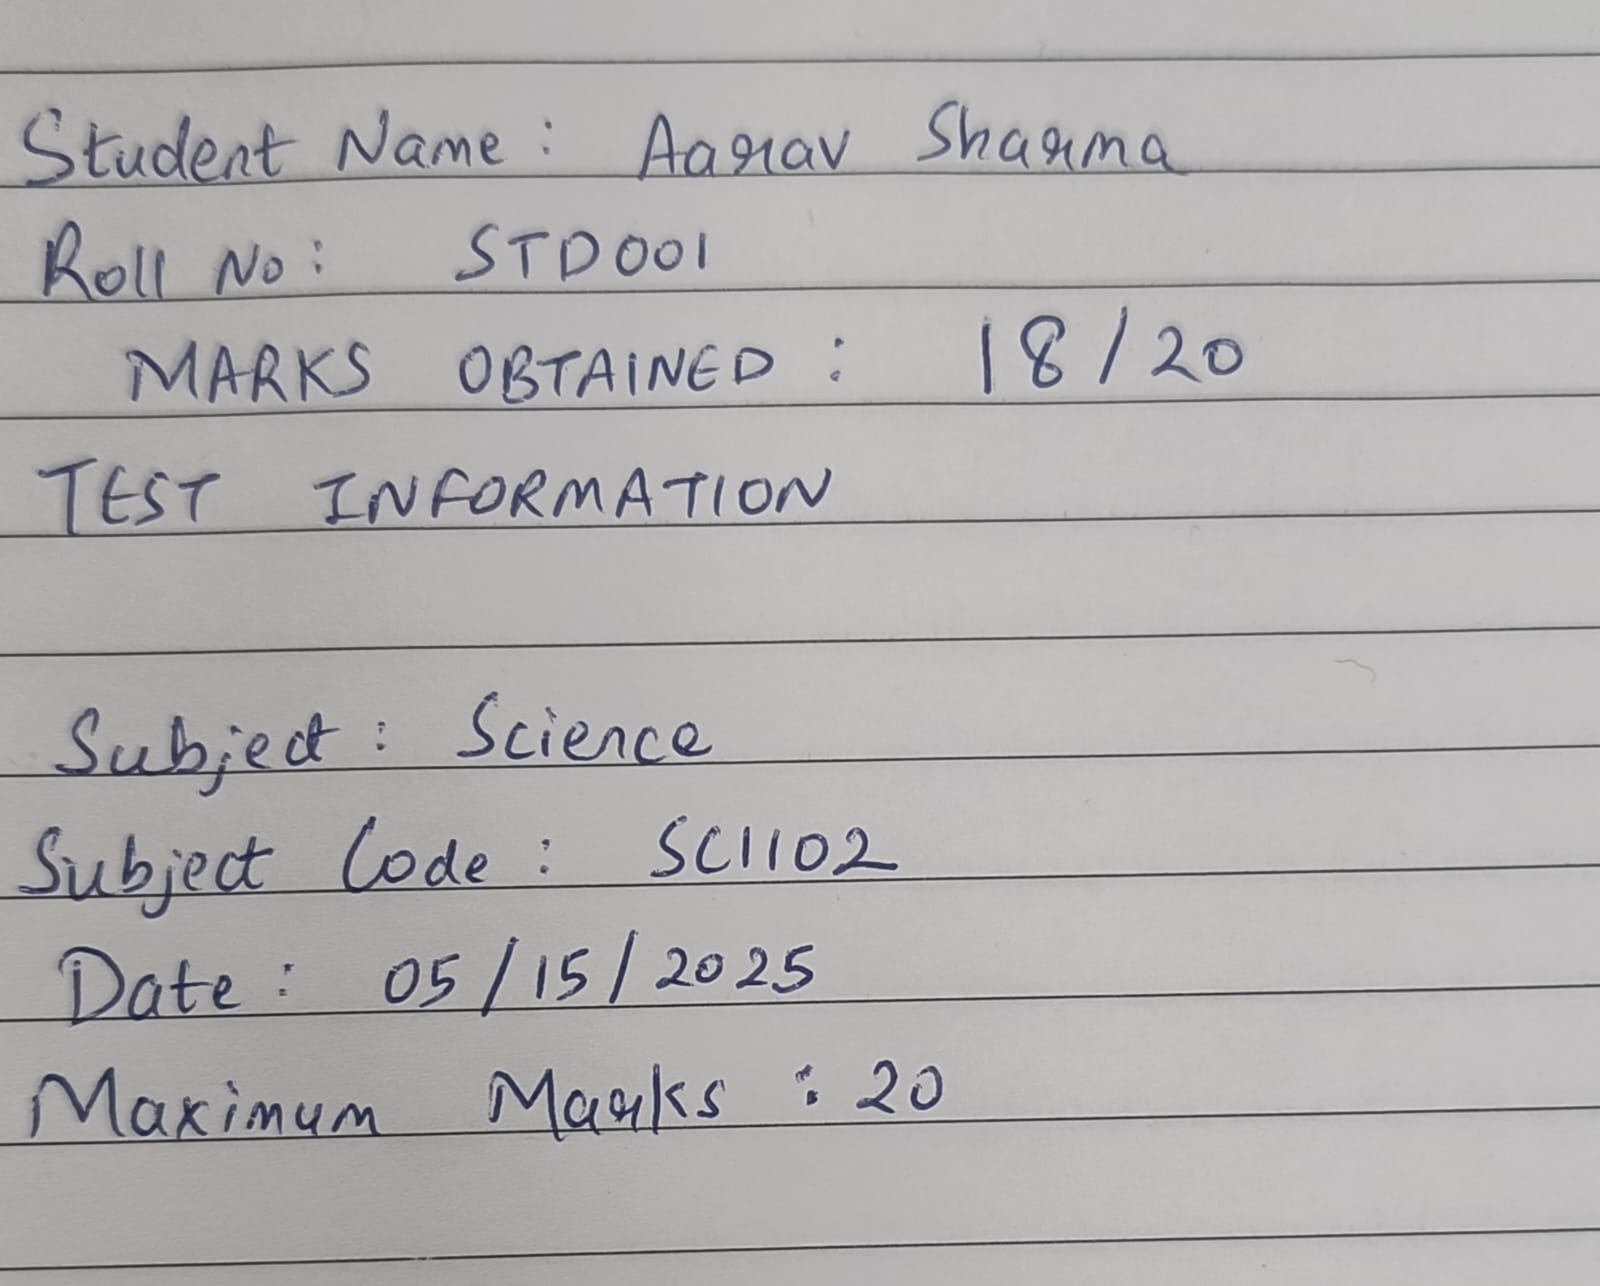 Student Name: Aarav Sharma
Roll No: STD001
MARKS OBTAINED: 18/20
TEST INFORMATION
Subject: Science
Subject Code: SCI102
Date: 05/15/2025
Maximum Marks: 20